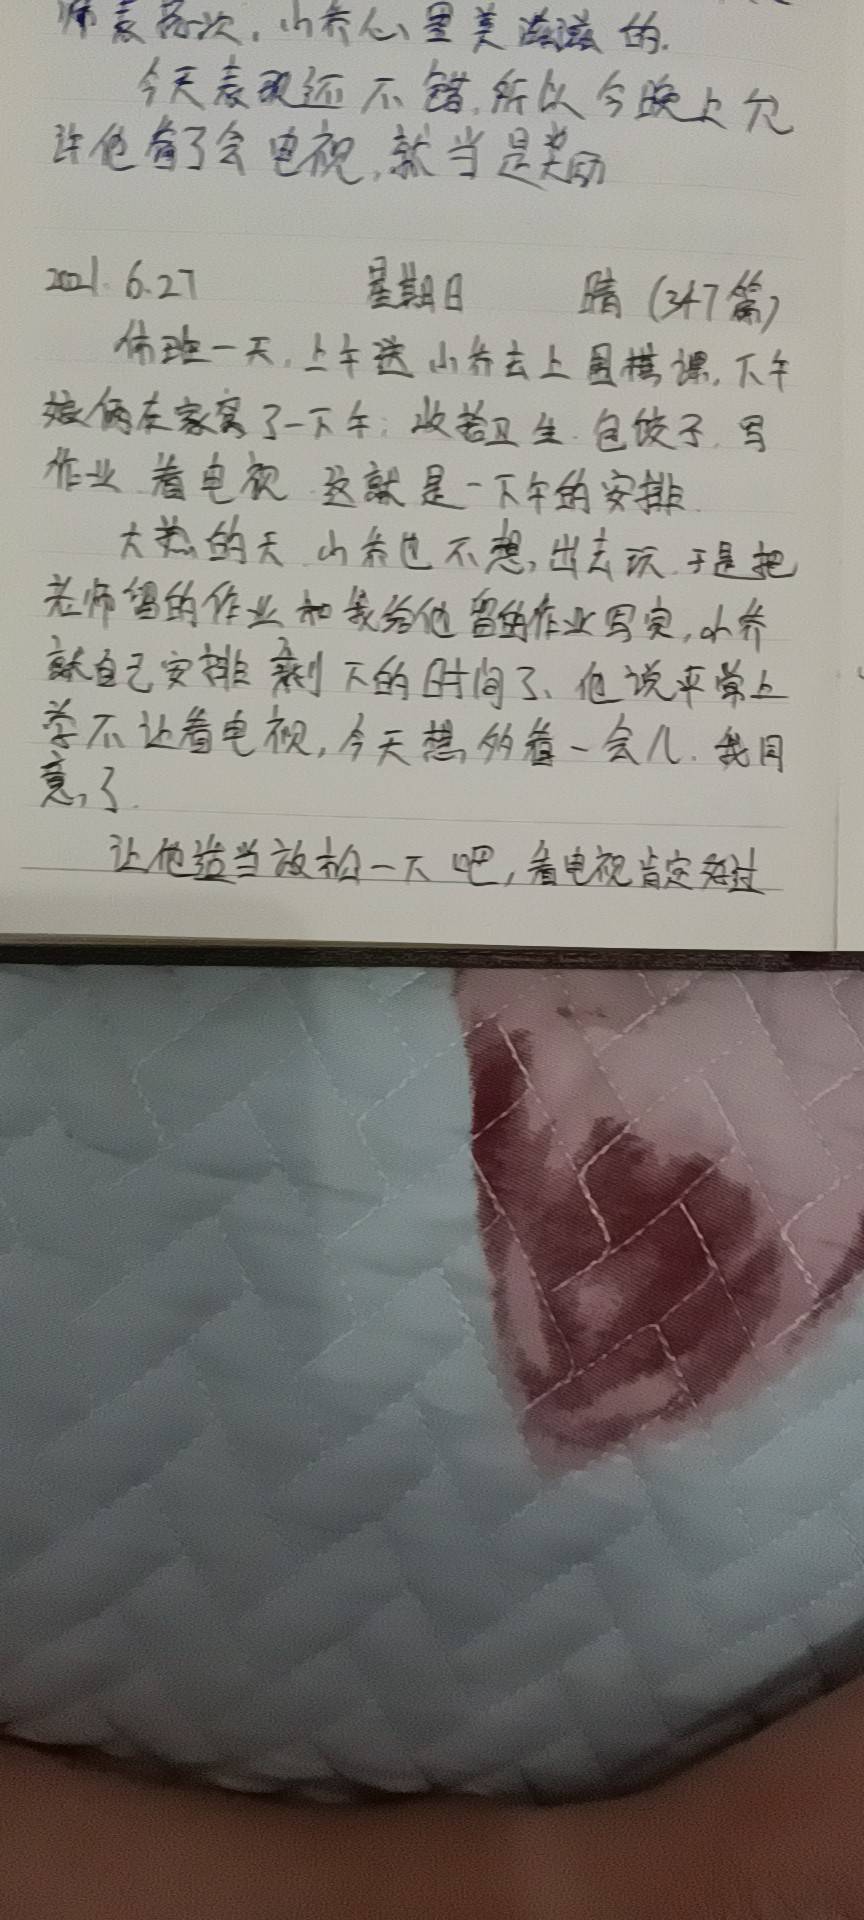 师表扬次，小乔心里美滋滋的。
今天表现还不错，所以今晚上允
许他看了会电视，就当是奖励
2021.6.27 星期日 晴（347篇）
休班一天，上午送小乔去上围棋课，下午
娘俩在家窝了一下午：收若卫生、包饺子、写
作业、看电视，这就是一下午的安排。
大热的天，小乔也不想出去玩，于是把
老师留的作业和我给他留的作业写完，小乔
就自己安排剩下的时间了、他说平常上
学不让看电视，今天想多看一会儿。我同
意了。
让他适当放松一下吧，看电视肯定好过